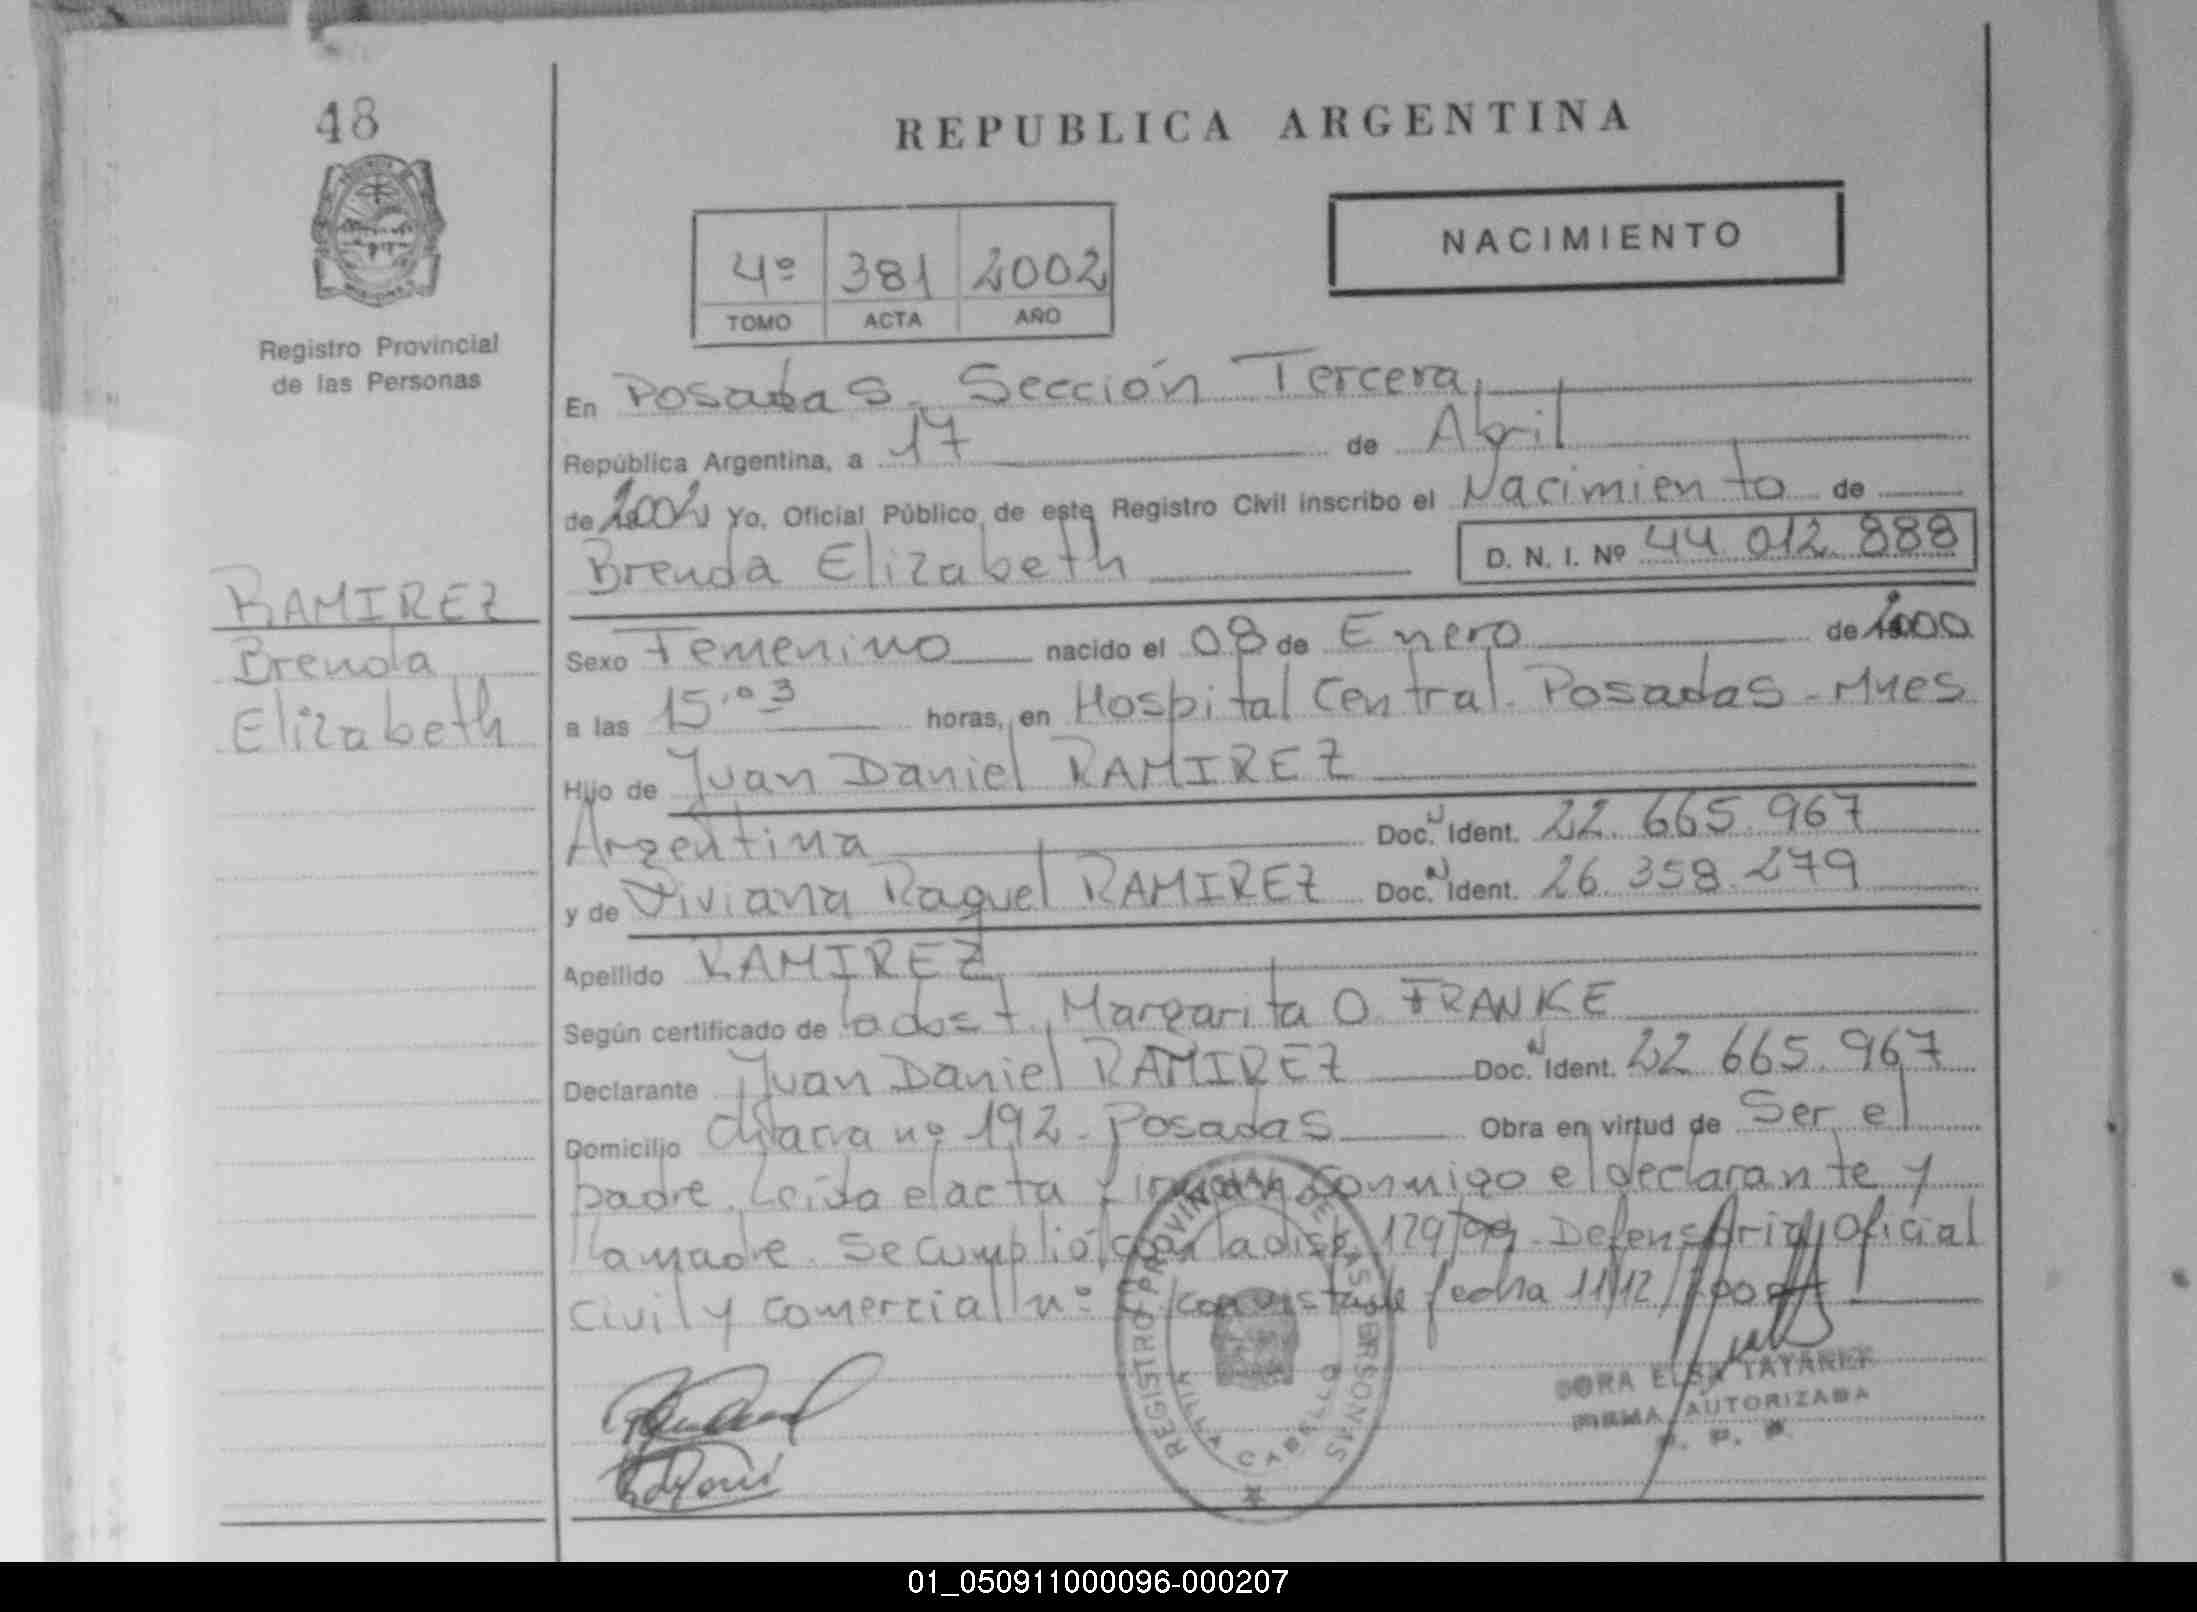 48
REPUBLICA ARGENTINA
NACIMIENTO
4º 381 2002
TOMO ACTA AÑO
Registro Provincial
de las Personas
En Posadas. Sección Tercera
República Argentina, a 17 de Abril
de 2002 Yo, Oficial Público de este Registro Civil inscribo el Nacimiento de
Brenda Elizabeth D. N. I. Nº 44.012.888
RAMIREZ
Brenda
Elizabeth
Sexo Femenino nacido el 08 de Enero de 2000
a las 15.03 horas, en Hospital Central. Posadas - Mnes
Hijo de Juan Daniel RAMIREZ
Argentina Doc. Ident. 22.665.967
y de Viviana Raquel RAMIREZ Doc. Ident. 26.358.279
Apellido RAMIREZ
Según certificado de la obst. Margarita O. FRANKE
Declarante Juan Daniel RAMIREZ Doc. Ident. 22.665.967
Domicilio nº 192 - Posadas Obra en virtud de Ser el
padre. Leída el acta firman conmigo el declarante y
la madre. Se cumplió con la disp. 129/99 - Defensoría Oficial
Civil y comercial nº con vista de fecha 11/12/
REGISTRO PROVINCIAL DE LAS PERSONAS
CABELLO
DORA ELSA
FIRMA AUTORIZADA
01_050911000096-000207